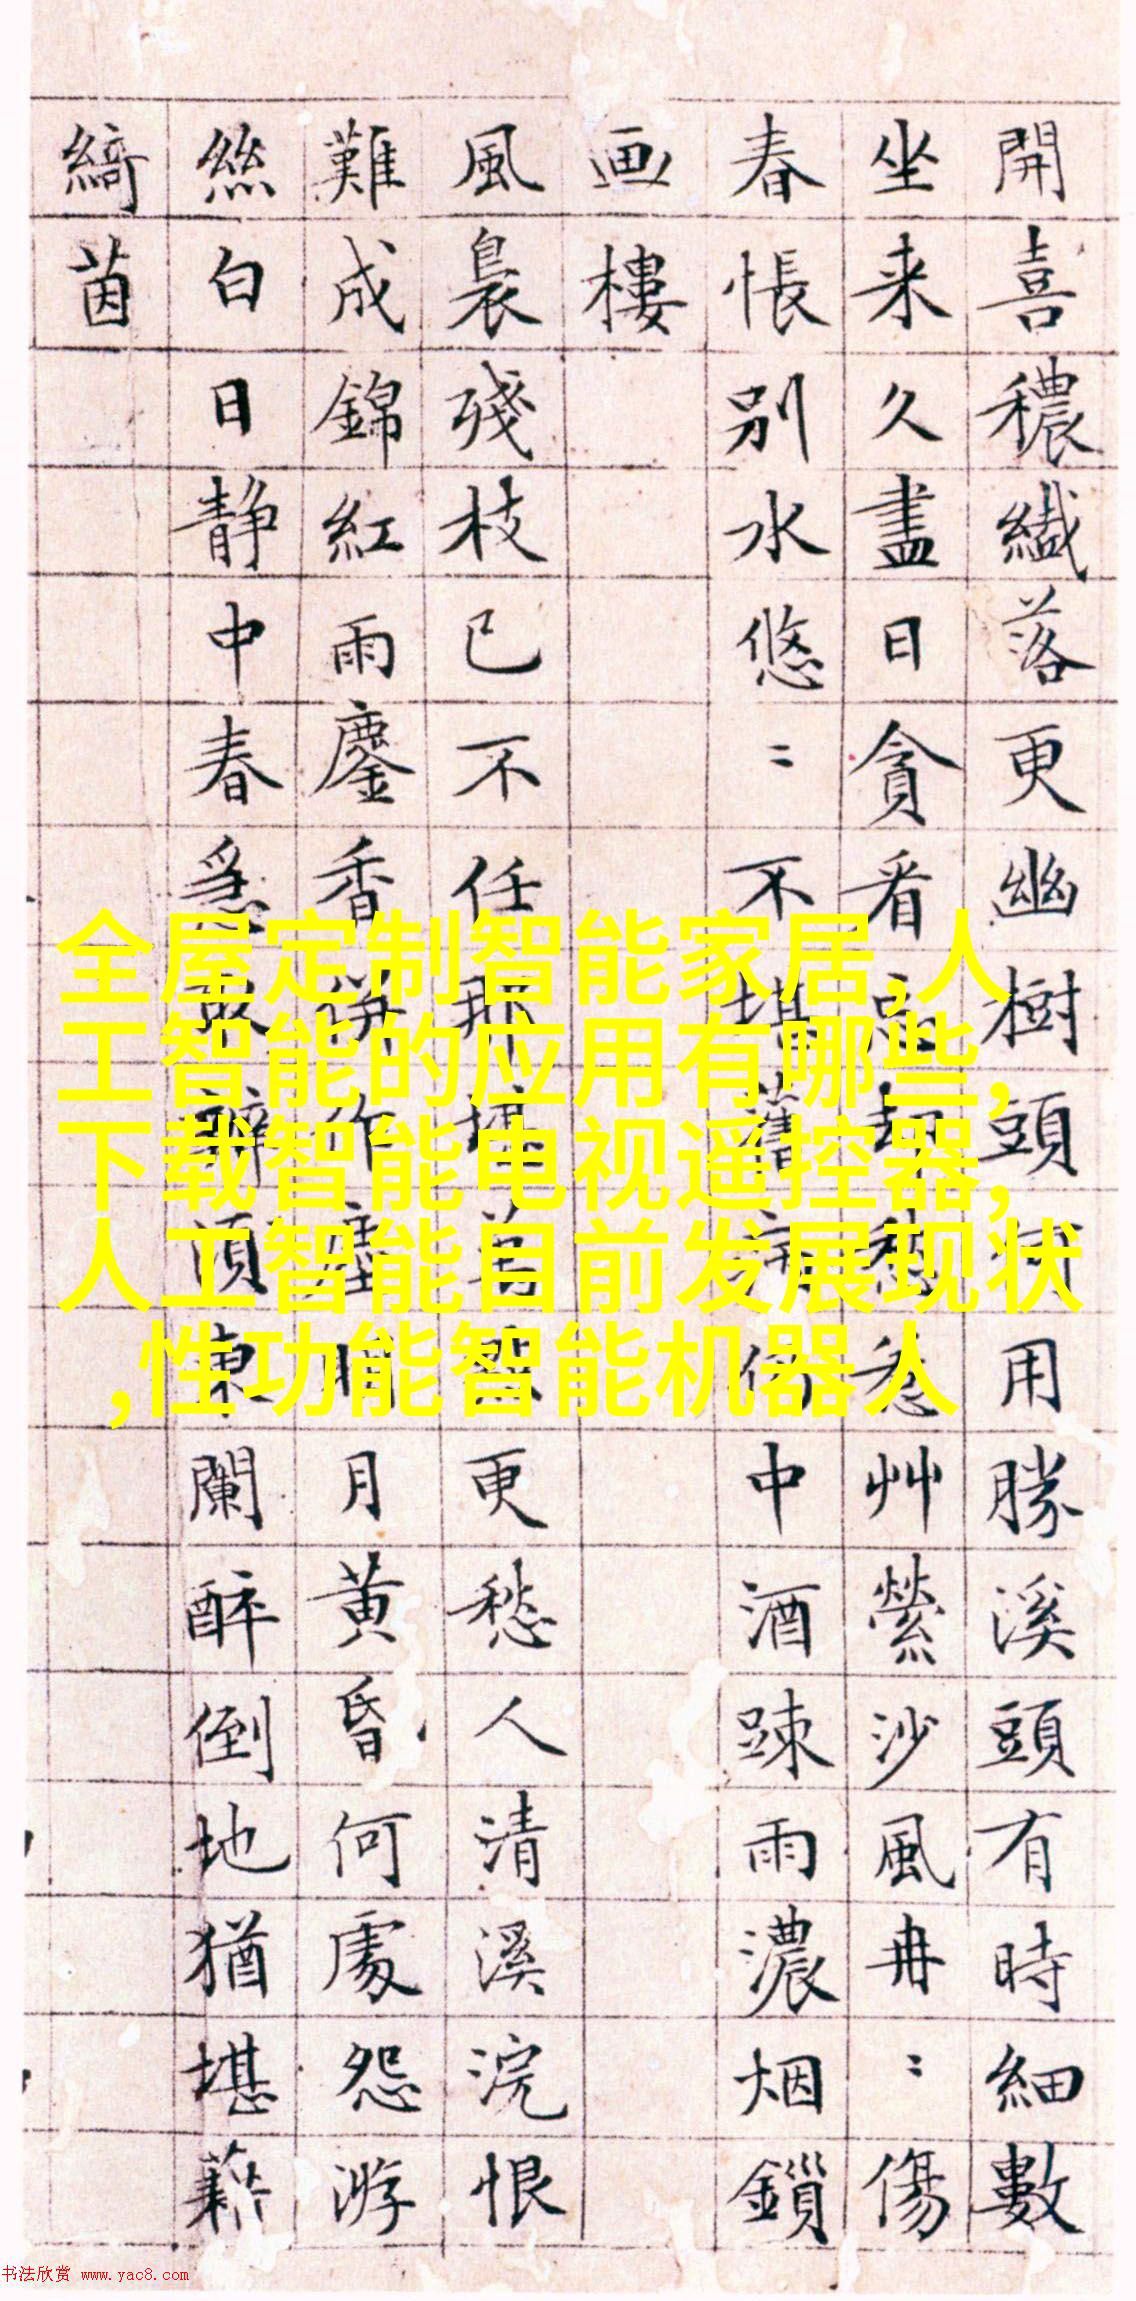 開喜穠纖落更幽樹頭用勝溪頭有時細數
坐来久盡日貪看却艸縈沙風冉〻傷
春悵別水悠〻不堪舊中酒踈雨濃烟鎖
画樓
風裊殘枝已不任那堪更愁人清溪浣恨
難成錦紅雨鏖香併作塵明月黄昏何處怨游
絲白日静中春辭須東闌醉倒地猶堪藉
綺茵
全屋定制智能家居,人
工智能的应用有哪些,
下载智能电视遥控器,
人工智能目前发展现状
,性功能智能机器人
书法欣赏 www.yac8.com